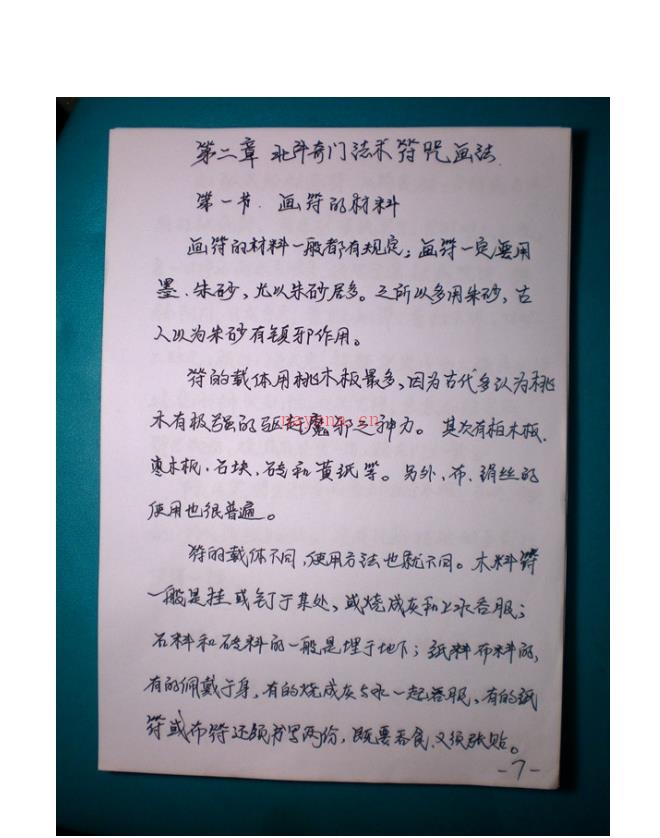 第二章 北斗奇门法术符咒画法
第一节. 画符的材料
画符的材料一般都有规定；画符一定要用
墨、朱砂，尤以朱砂居多。之所以多用朱砂，古
人以为朱砂有镇邪作用。
符的载体用桃木板最多，因为古代多认为桃
木有极强的驱赶魔邪之神力。其次有柏木板、
枣木板、石块、砖和黄纸等。另外、布、绢丝的
使用也很普遍。
nayona.cn
符的载体不同，使用方法也就不同。木料符
一般是挂或钉于某处、或烧成灰和上水吞服；
石料和砖料的一般是埋于地下；纸料布料的，
有的佩戴于身，有的烧成灰与水一起吞服、有的纸
符或布符还须书写两份，既要吞食、又须张贴。
-7-